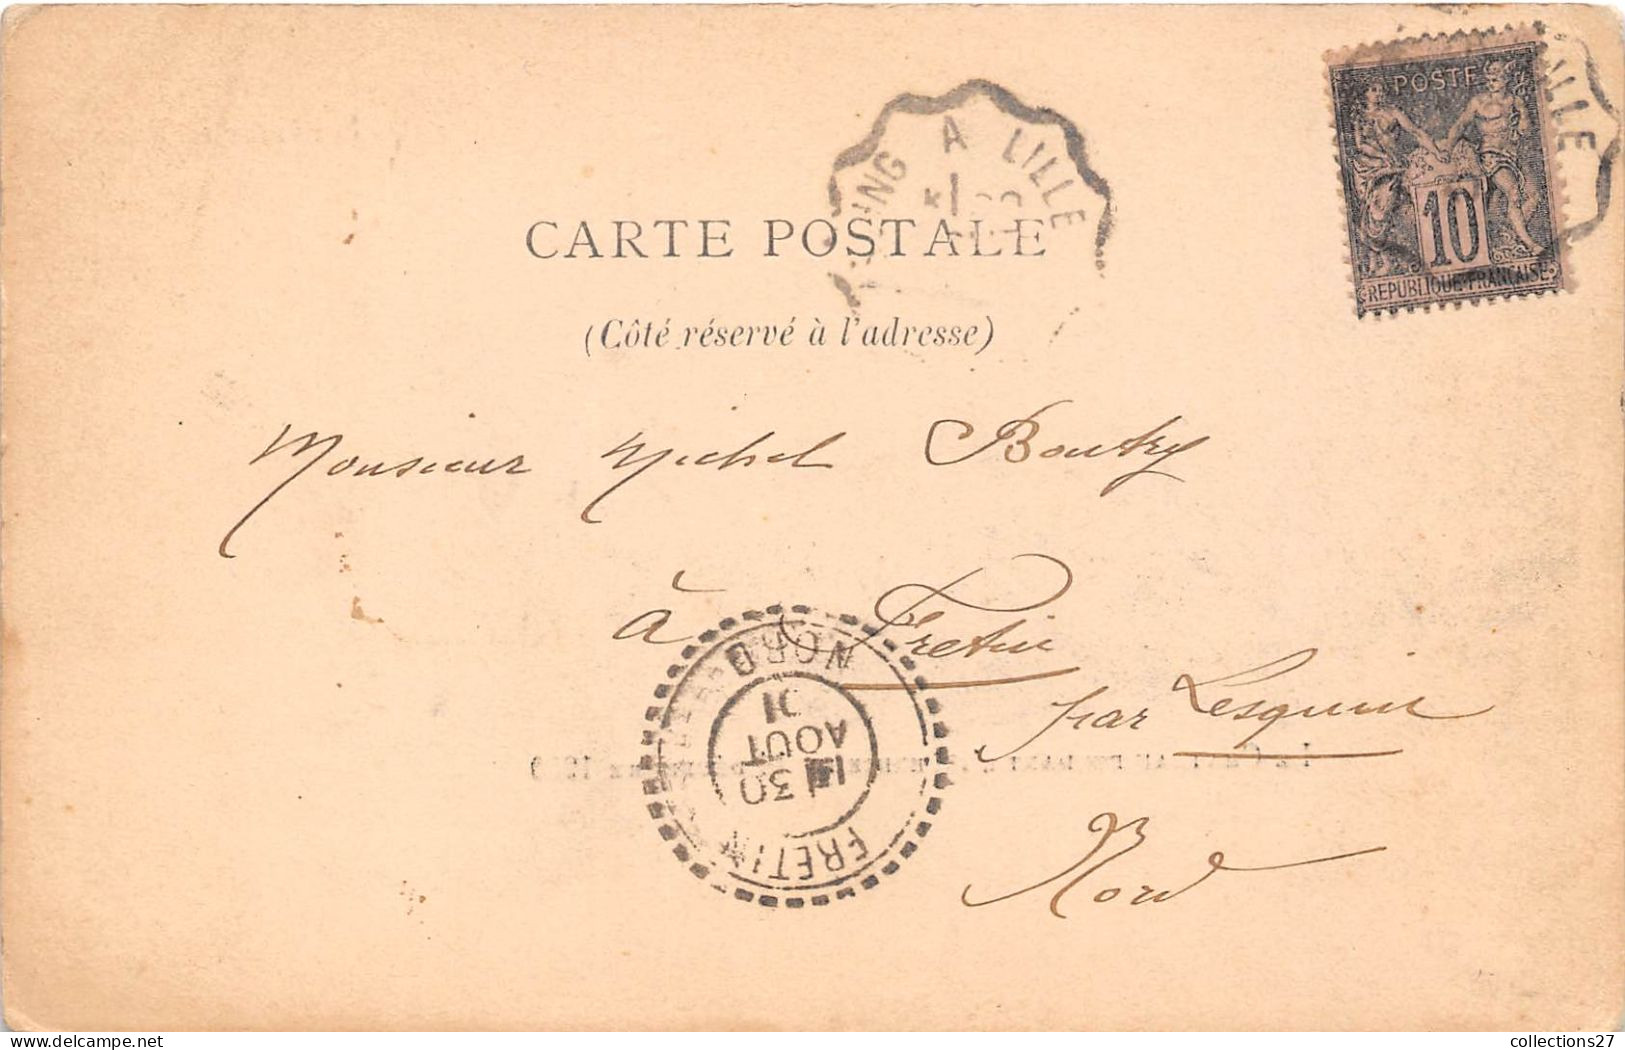 POSTE
10
REPUBLIQUE FRANÇAISE
ING A LILLE
ILLE
CARTE POSTALE
(Côté réservé à l'adresse)
Monsieur Michel Boutry
à Fretin
par Lesquin
Nord
FRETIN
30
AOUT
01
NORD
collections27